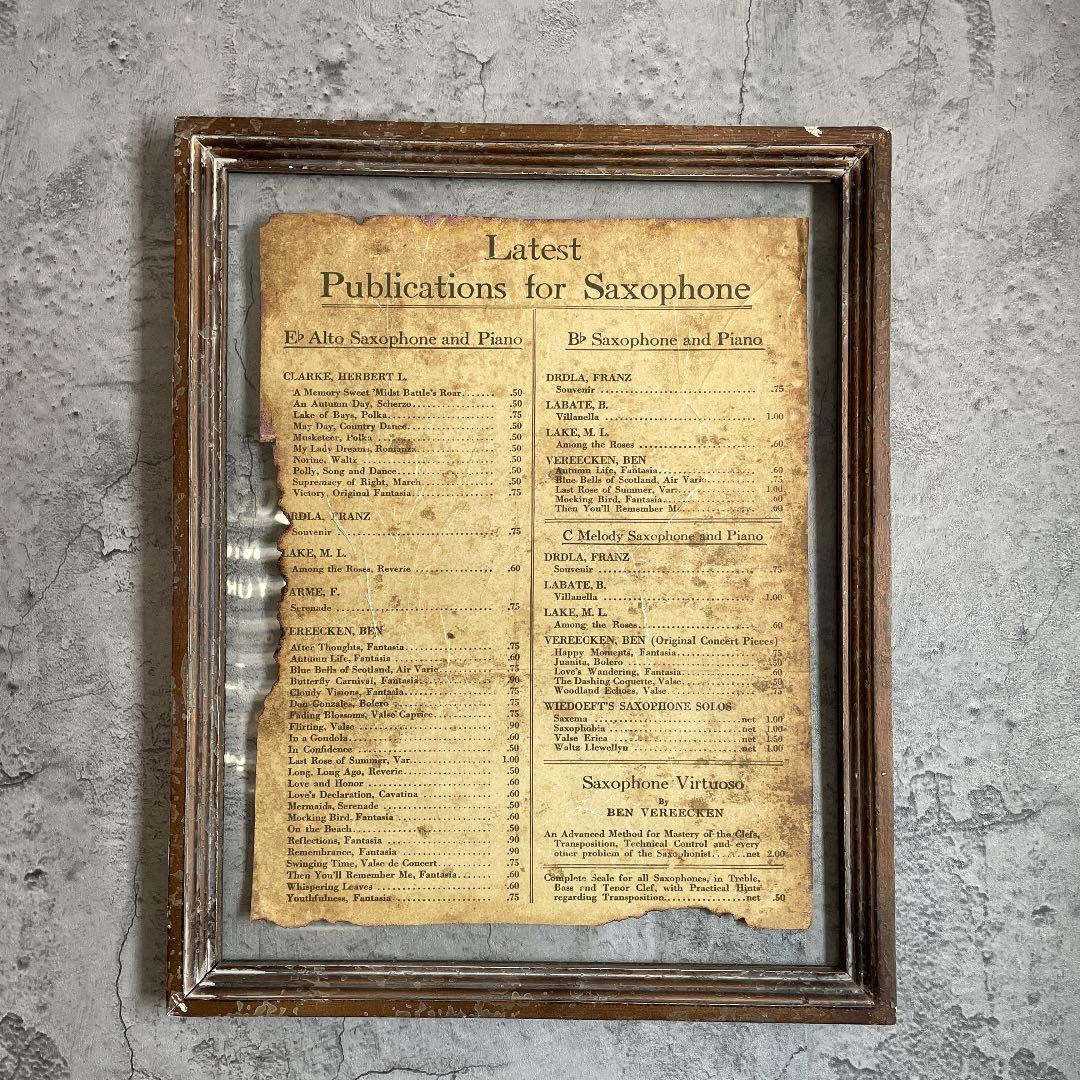 Latest
Publications for Saxophone
E♭ Alto Saxophone and Piano
CLARKE, HERBERT L.
A Memory Sweet 'Midst Battle's Roar...... .50
An Autumn Day, Scherzo.................. .50
Lake of Bays, Polka..................... .75
May Day, Country Dance.................. .50
Musketeer, Polka ....................... .50
My Lady Dreams, Romanza................. .50
Norine, Waltz .......................... .50
Polly, Song and Dance................... .50
Supremacy of Right, March............... .50
Victory, Original Fantasia.............. .75
DRDLA, FRANZ
Souvenir ............................... .75
LAKE, M. L.
Among the Roses, Reverie ............... .60
PARME, F.
Serenade ............................... .75
VEREECKEN, BEN
After Thoughts, Fantasia................ .75
Autumn Life, Fantasia .................. .60
Blue Bells of Scotland, Air Varie....... .75
Butterfly Carnival, Fantasia............ .90
Cloudy Visions, Fantasia................ .75
Don Gonzales, Bolero ................... .75
Fading Blossoms, Valse Caprice.......... .75
Flirting, Valse ........................ .90
In a Gondola............................ .60
In Confidence .......................... .50
Last Rose of Summer, Var................ 1.00
Long, Long Ago, Reverie................. .50
Love and Honor ......................... .60
Love's Declaration, Cavatina ........... .60
Mermaids, Serenade ..................... .50
Mocking Bird, Fantasia.................. .60
On the Beach............................ .50
Reflections, Fantasia .................. .90
Remembrance, Fantasia .................. .90
Swinging Time, Valse de Concert......... .75
Then You'll Remember Me, Fantasia....... .60
Whispering Leaves ...................... .60
Youthfulness, Fantasia ................. .75
B♭ Saxophone and Piano
DRDLA, FRANZ
Souvenir ............................... .75
LABATE, B.
Villanella ............................. 1.00
LAKE, M. L.
Among the Roses ........................ .60
VEREECKEN, BEN
Autumn Life, Fantasia................... .60
Blue Bells of Scotland, Air Varie....... .75
Last Rose of Summer, Var................ 1.00
Mocking Bird, Fantasia.................. .60
Then You'll Remember Me................. .60
C Melody Saxophone and Piano
DRDLA, FRANZ
Souvenir ............................... .75
LABATE, B.
Villanella ............................. 1.00
LAKE, M. L.
Among the Roses......................... .60
VEREECKEN, BEN (Original Concert Pieces)
Happy Moments, Fantasia................. .75
Juanita, Bolero ........................ .50
Love's Wandering, Fantasia.............. .60
The Dashing Coquette, Valse............. .50
Woodland Echoes, Valse ................. .75
WIEDOEFT'S SAXOPHONE SOLOS
Saxema .............................net 1.00
Saxophobia .........................net 1.00
Valse Erica ........................net 1.50
Waltz Llewellyn ....................net 1.00
Saxophone Virtuoso
By
BEN VEREECKEN
An Advanced Method for Mastery of the Clefs,
Transposition, Technical Control and every
other problem of the Saxophonist........net 2.00
Complete Scale for all Saxophones, in Treble,
Bass and Tenor Clef, with Practical Hints
regarding Transposition.................net .50